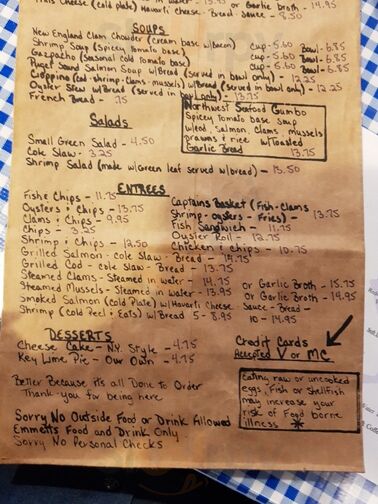 Thais Cheese (cold plate) Havarti cheese - Bread - Sauce - 8.50
in water - 13.95 or Garlic broth - 14.95
SOUPS
New England Clam Chowder (cream base w/bacon) Cup - 5.60 Bowl - 6.85
Shrimp Soup (Spicey tomato base) Cup - 5.60 Bowl - 6.85
Gazpacho (Seasonal cold tomato base) Cup - 5.60 Bowl - 6.85
Puget Sound Salmon Soup w/Bread (served in bowl only) - 12.25
Cioppino (cod - shrimp - clams - mussels) w/Bread (served in bowl only) - 12.25
Oyster Stew w/Bread (served in bowl only) - 13.75
French Bread - .75
Northwest Seafood Gumbo
Spicey tomato base soup
w/cod, Salmon, clams, mussels
prawns & rice w/Toasted
Garlic Bread 13.75
Salads
Small Green Salad - 4.50
Cole Slaw - 3.25
Shrimp Salad (made w/Green leaf served w/bread) - 13.50
ENTREES
Fish & Chips - 11.75
Oysters & Chips - 13.75
Clams & Chips - 9.95
Chips - 3.25
Shrimp & Chips - 12.50
Captains Basket (Fish - Clams
Shrimp - Oysters - Fries) - 13.75
Fish Sandwich - 11.75
Oyster Roll - 12.75
Chicken & Chips - 10.75
Grilled Salmon - Cole Slaw - Bread - 14.75
Grilled Cod - Cole Slaw - Bread - 13.75
Steamed Clams - Steamed in water - 14.75 or Garlic Broth - 15.75
Steamed Mussels - Steamed in water - 13.95 or Garlic Broth - 14.95
Smoked Salmon (Cold Plate) w/Havarti Cheese Sauce - Bread - 14.95
Shrimp (Cold Peel & Eats) w/Bread 5 - 8.95 10 - 14.95
DESSERTS
Cheese Cake - N.Y. Style - 4.75
Key Lime Pie - Our Own - 4.75
Credit Cards
Accepted V or MC
Better Because it's all Done to Order
Thank you for being here
Eating raw or uncooked
eggs, Fish or Shellfish
may increase your
risk of Food borne
illness *
Sorry No Outside Food or Drink Allowed
Emmetts Food and Drink Only
Sorry No Personal Checks